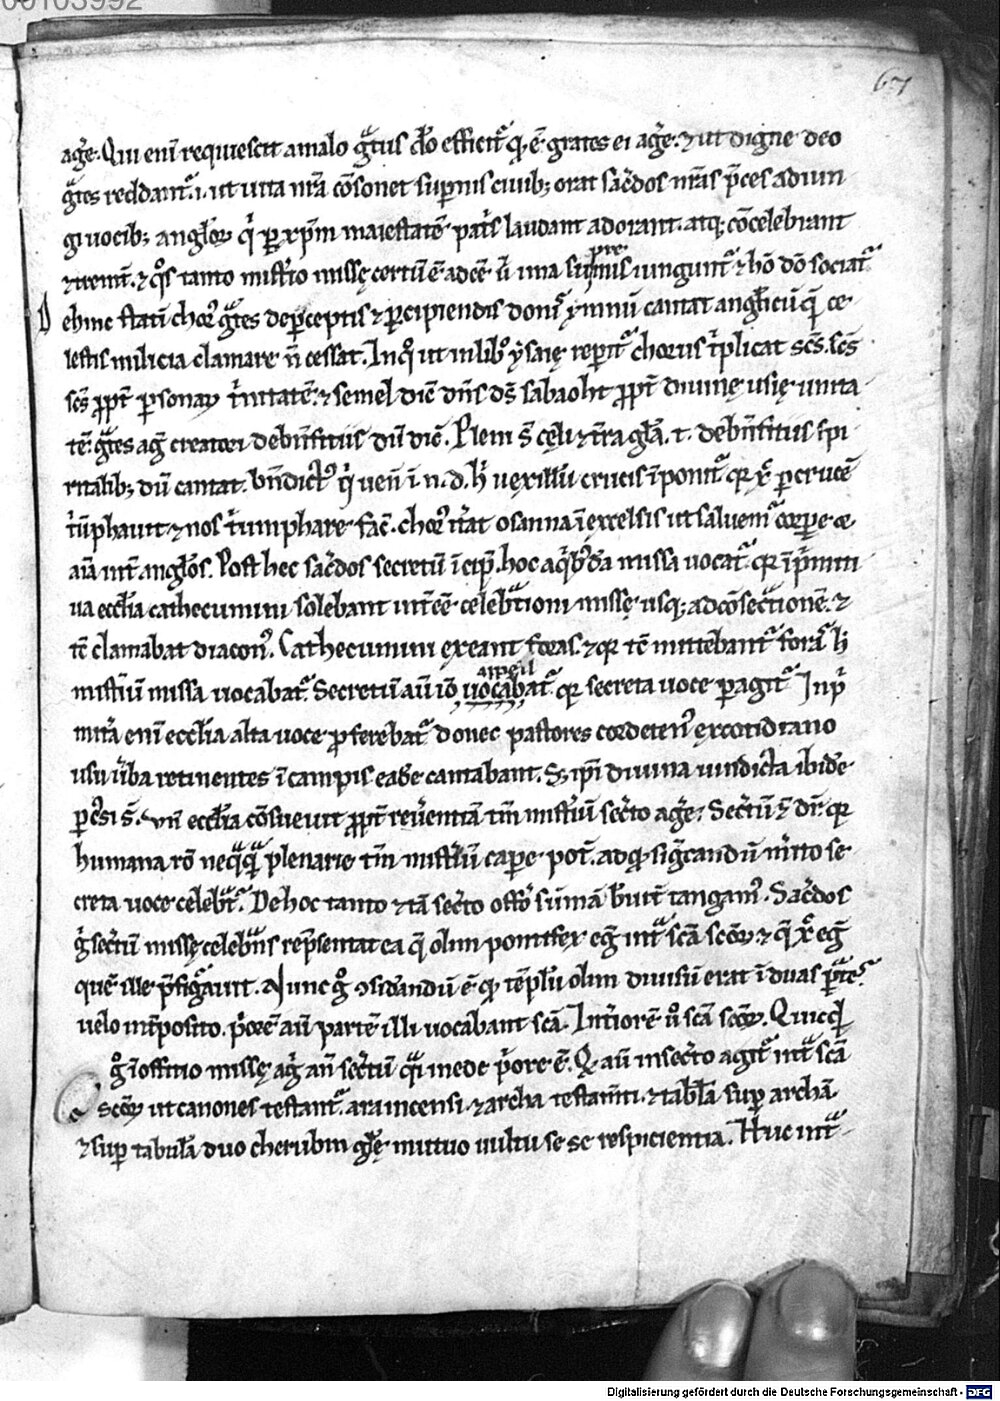 00103992
67
agẽ. Qui eni requiescit a malo gͣtus dõ efficit᷑ qͥ ẽ grates ei agẽ. ⁊ ut digne deo
gͣtes reddant᷑ .i. ut uita nrã cõsonet supnis ciuib; orat sacͤdos nrãs p̃ces adiun
gi uocib; anglo⁊ qͥ ꝑ xp̃m maiestatẽ patͥs laudant adorant. atq; cõcelebrant
⁊ tremt̃. ⁊ qͦs tanto misͭio missę certũ ẽ adeẽ ñ una supnis iungunt᷑ ⁊ hõ dõ sociat᷑
ehinc statĩ choꝰ gͣtes de ꝑceptis ⁊ ꝑcipiendis donis ymnũ cantat anglicũ q̃ ce
lestis milicia clamare ñ cessat. In qͦ ut in libͦ ysaię repit᷑ chorus tͥplicat scs̃. scs̃
scs̃ ꝓpt̃ ꝑsona⁊ tͥnitatẽ. ⁊ semel diẽ dñs ds̃ sabaoht ꝓpt̃ diuinę usię unita
tẽ. gͣtes ag̃ creatori de bñfitiis dũ diẽ. Pleni s̃ cęli ⁊ tr̃a glã. t. de bñfitiis spi
ritalib; dũ cantat. bñdictꝰ qͥ ueñ ĩ. n. d. h̃ uexillũ crucis ĩponit᷑ qꝛ xp̃ ꝑ crucẽ
tͥũphauit ⁊ nos tͥumphare fac̃. choꝰ itͤat osanna ĩ excelsis ut saluem᷑ corpe ⁊
aĩa int̃ anglõs. Post hec sacͤdos secretũ ĩcip̃. hoc a qͥbꝰdã missa uocat᷑ qꝛ ĩ pͥmiti
ua eccłia cathecumini solebant int̃eẽ celebͣtioni missę usq; ad cõsecͣtionẽ. ⁊
tc̃ clamabat diaconꝰ. Cathecumini exeant foras. ⁊ qꝛ tc̃ mittebant᷑ foras h̃
misͭiũ missa uocabat᷑. Secretũ aũ iõ uocabat᷑ appell qꝛ secreta uoce ꝑagit᷑ In pͥ
mitͥa eni eccłia alta uoce ꝓferebat᷑ donec pastores ex cotidiano
usu ũba retinentes ĩ campis ea cantabant. S; ipi diuina uindicta ibidẽ
ꝑcͣsi s̃. Uñ eccłia cõsueuit ꝓpt̃ reũentiã tm̃ misͭiũ secͤto agẽ. Secͤtũ ⁊ dr̃. qꝛ
humana rõ neq̃q̃ plenarie tm̃ misͭiũ cape pot̃. ad qͥ sigñcandũ mͥto se
creta uoce celebͣt᷑. De hoc tanto ⁊ tã secͤto offõ sũmã breuit̃ tangamꝰ. Sacͤdos
gͦ secͤtũ missę celebͣns rep̃sentat ea q̃ olim pontifex eg̃ int̃ scã sco⁊ ⁊ q̃ xp̃ eg̃
quẽ ille p̃figauit. Nunc gͦ ɔsidandũ ẽ qͥ tẽplũ olim diuisũ erat ĩ duas partes
uelo int̃posito. pͥorẽ aũ partẽ illi uocabant scã. Intͥorẽ ñ scã sco⁊. Quicqͥd
gͦ ĩ offitio missę agͥ añ secͤtũ qͣi in ede pͥore ẽ. Q aũ in secͤto agit᷑ int̃ scã
sco⁊ ut canones testant᷑ ara incensi. ⁊ archa testam̃ti. ⁊ tabłã sup archã.
⁊ sup tabulã duo cherubin głę mutuo uultu se se respicientia. Huc int̃
Digitalisierung gefördert durch die Deutsche Forschungsgemeinschaft - DFG